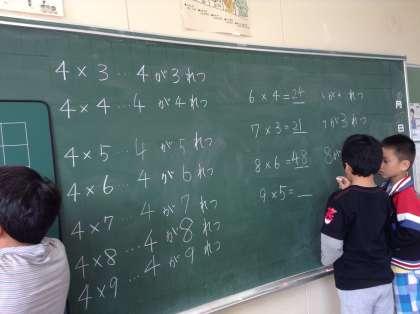 4×3…4が3れつ
4×4…4が4れつ
4×5…4が5れつ
4×6…4が6れつ
4×7…4が7れつ
4×8…4が8れつ
4×9…4が9れつ
6×4=24 れつ
7×3=21 が3れつ
8×6=48 8が
9×5=